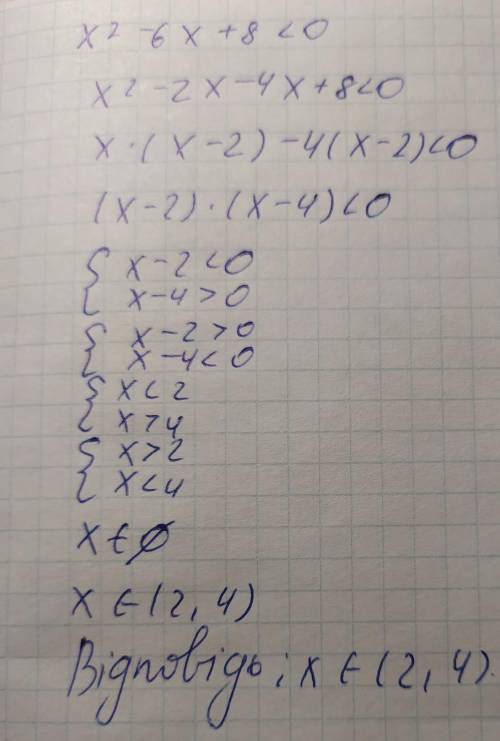 x² - 6x + 8 < 0
x² - 2x - 4x + 8 < 0
x · (x - 2) - 4(x - 2) < 0
(x - 2) · (x - 4) < 0
{ x - 2 < 0
{ x - 4 > 0
{ x - 2 > 0
{ x - 4 < 0
{ x < 2
{ x > 4
{ x > 2
{ x < 4
x ∈ ∅
x ∈ (2, 4)
Відповідь: x ∈ (2, 4).